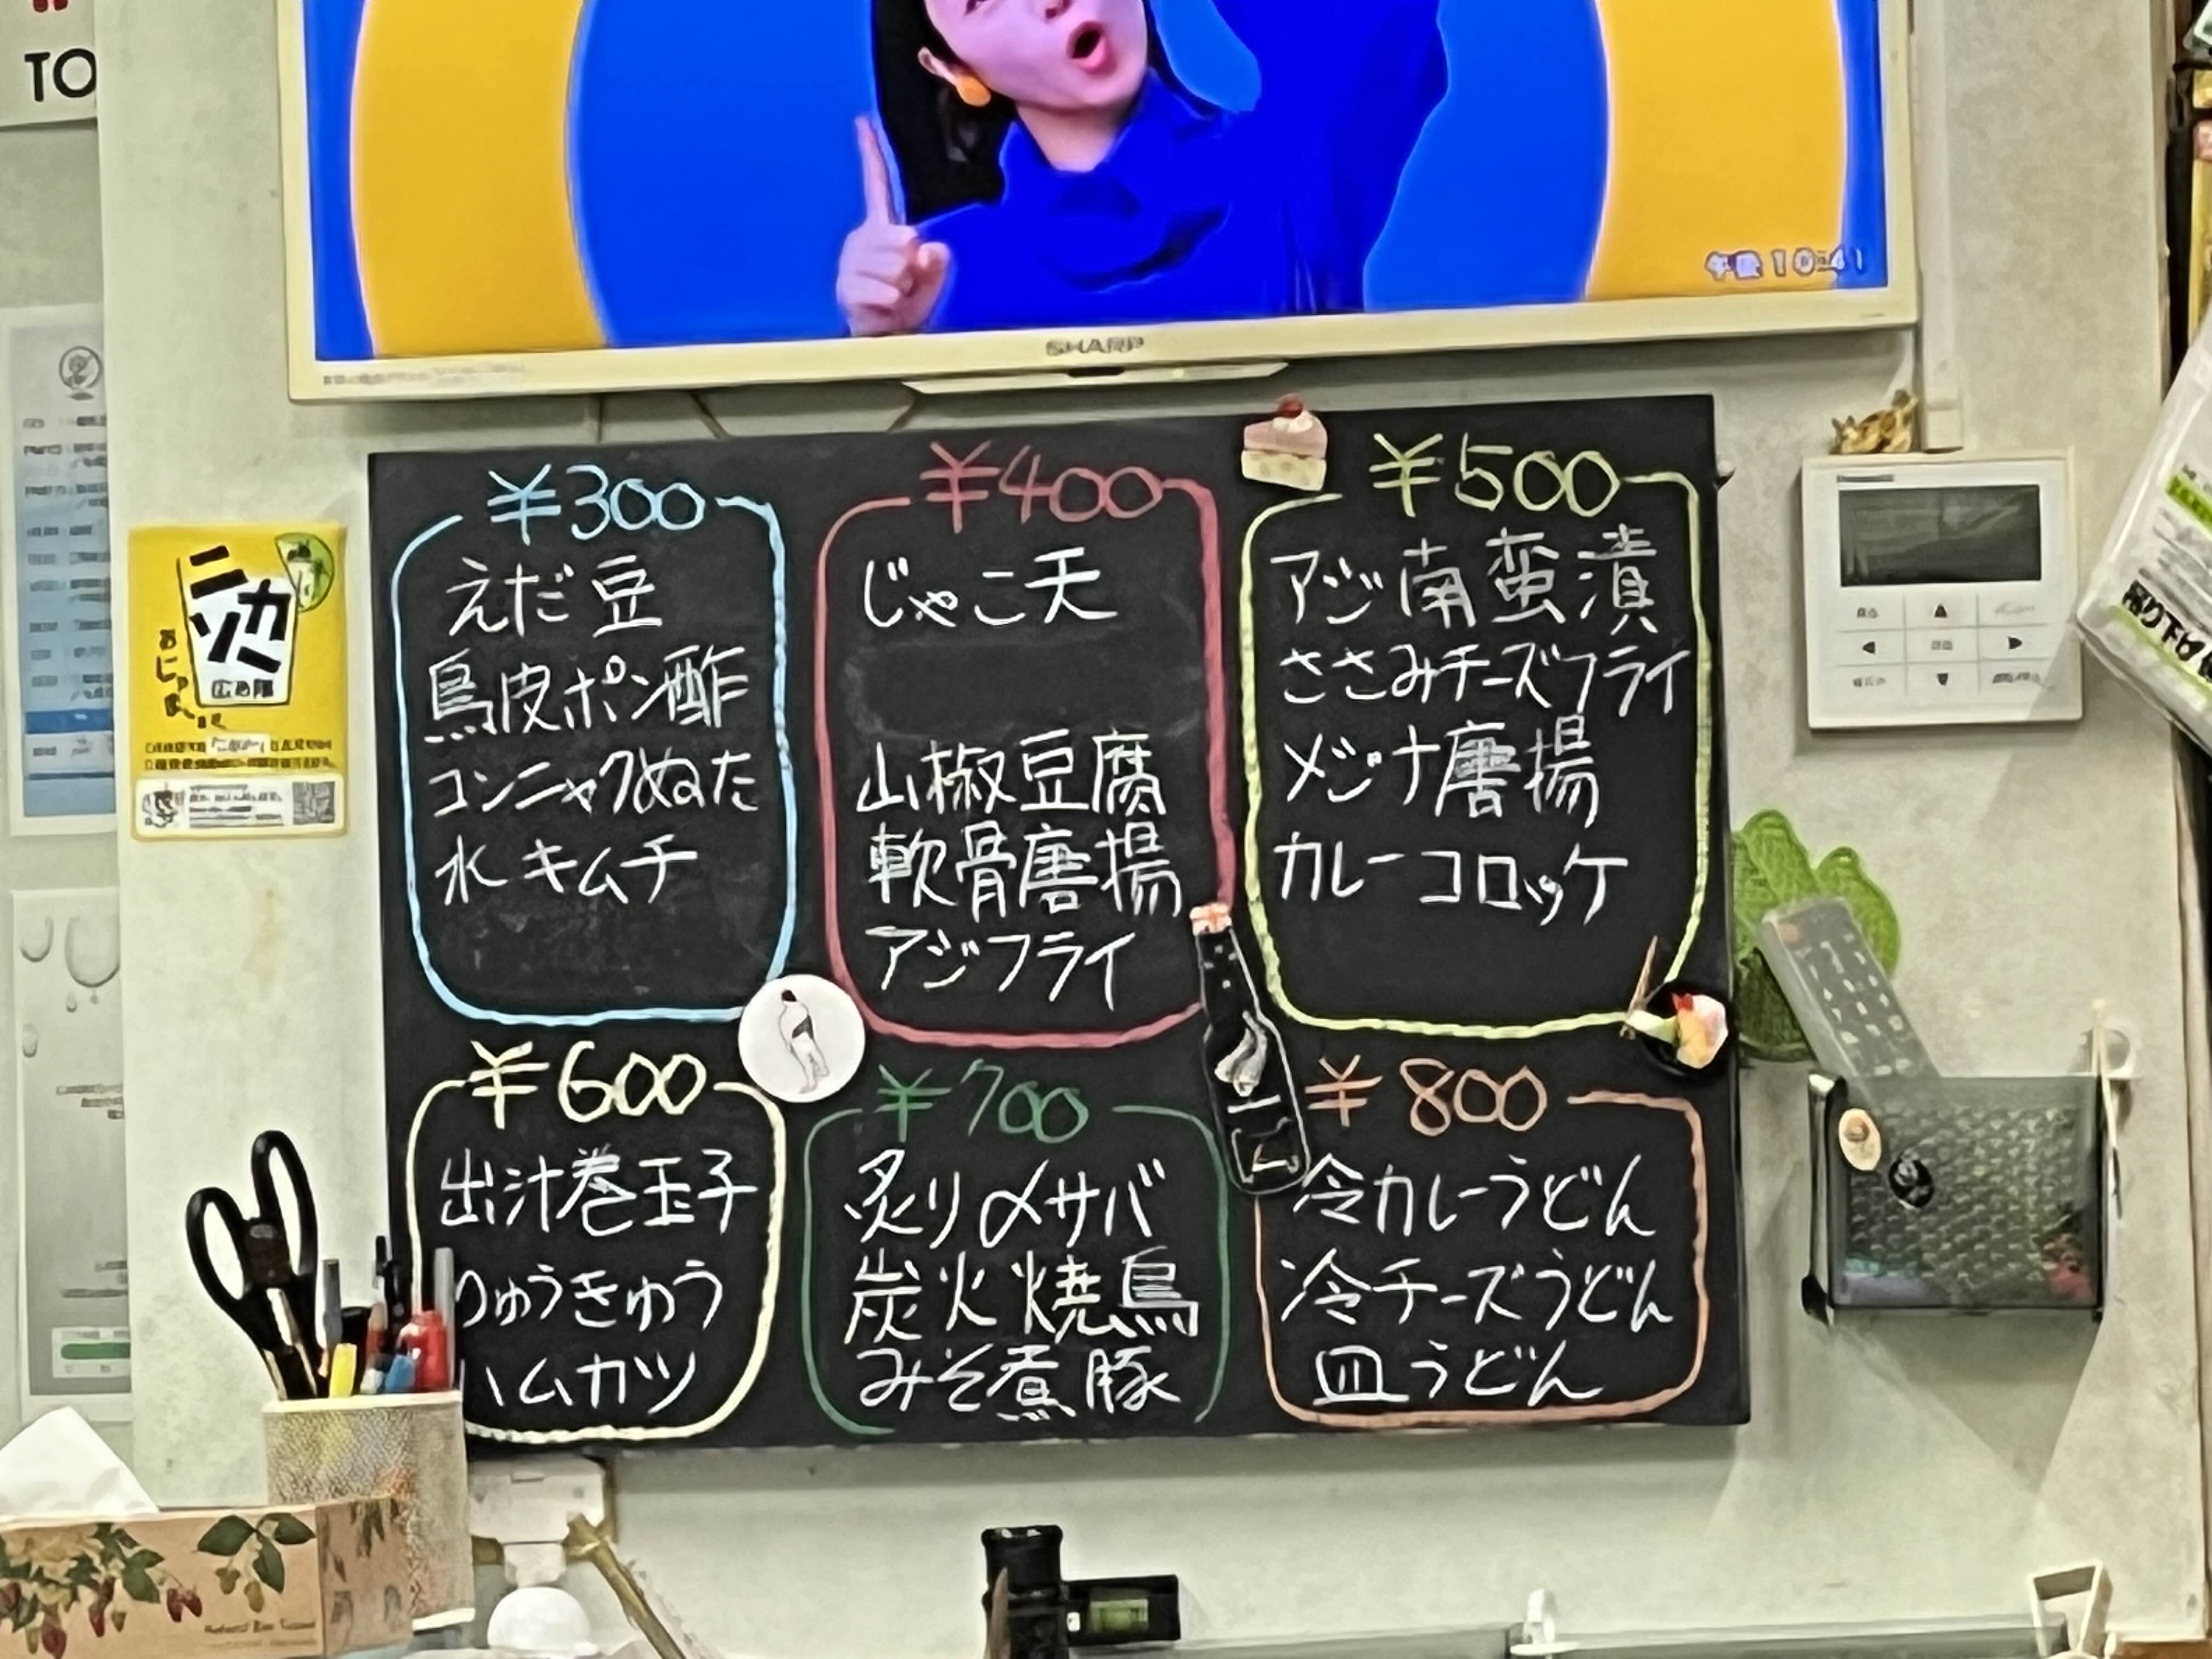 TO
午後10:41
SHARP
¥300
えだ豆
鳥皮ポン酢
コンニャクぬた
水キムチ
¥400
じゃこ天
山椒豆腐
軟骨唐揚
アジフライ
¥500
アジ南蛮漬
ささみチーズフライ
メジナ唐揚
カレーコロッケ
¥600
出汁巻玉子
りゅうきゅう
ハムカツ
¥700
炙り〆サバ
炭火焼鳥
みそ煮豚
¥800
冷カレーうどん
冷チーズうどん
皿うどん